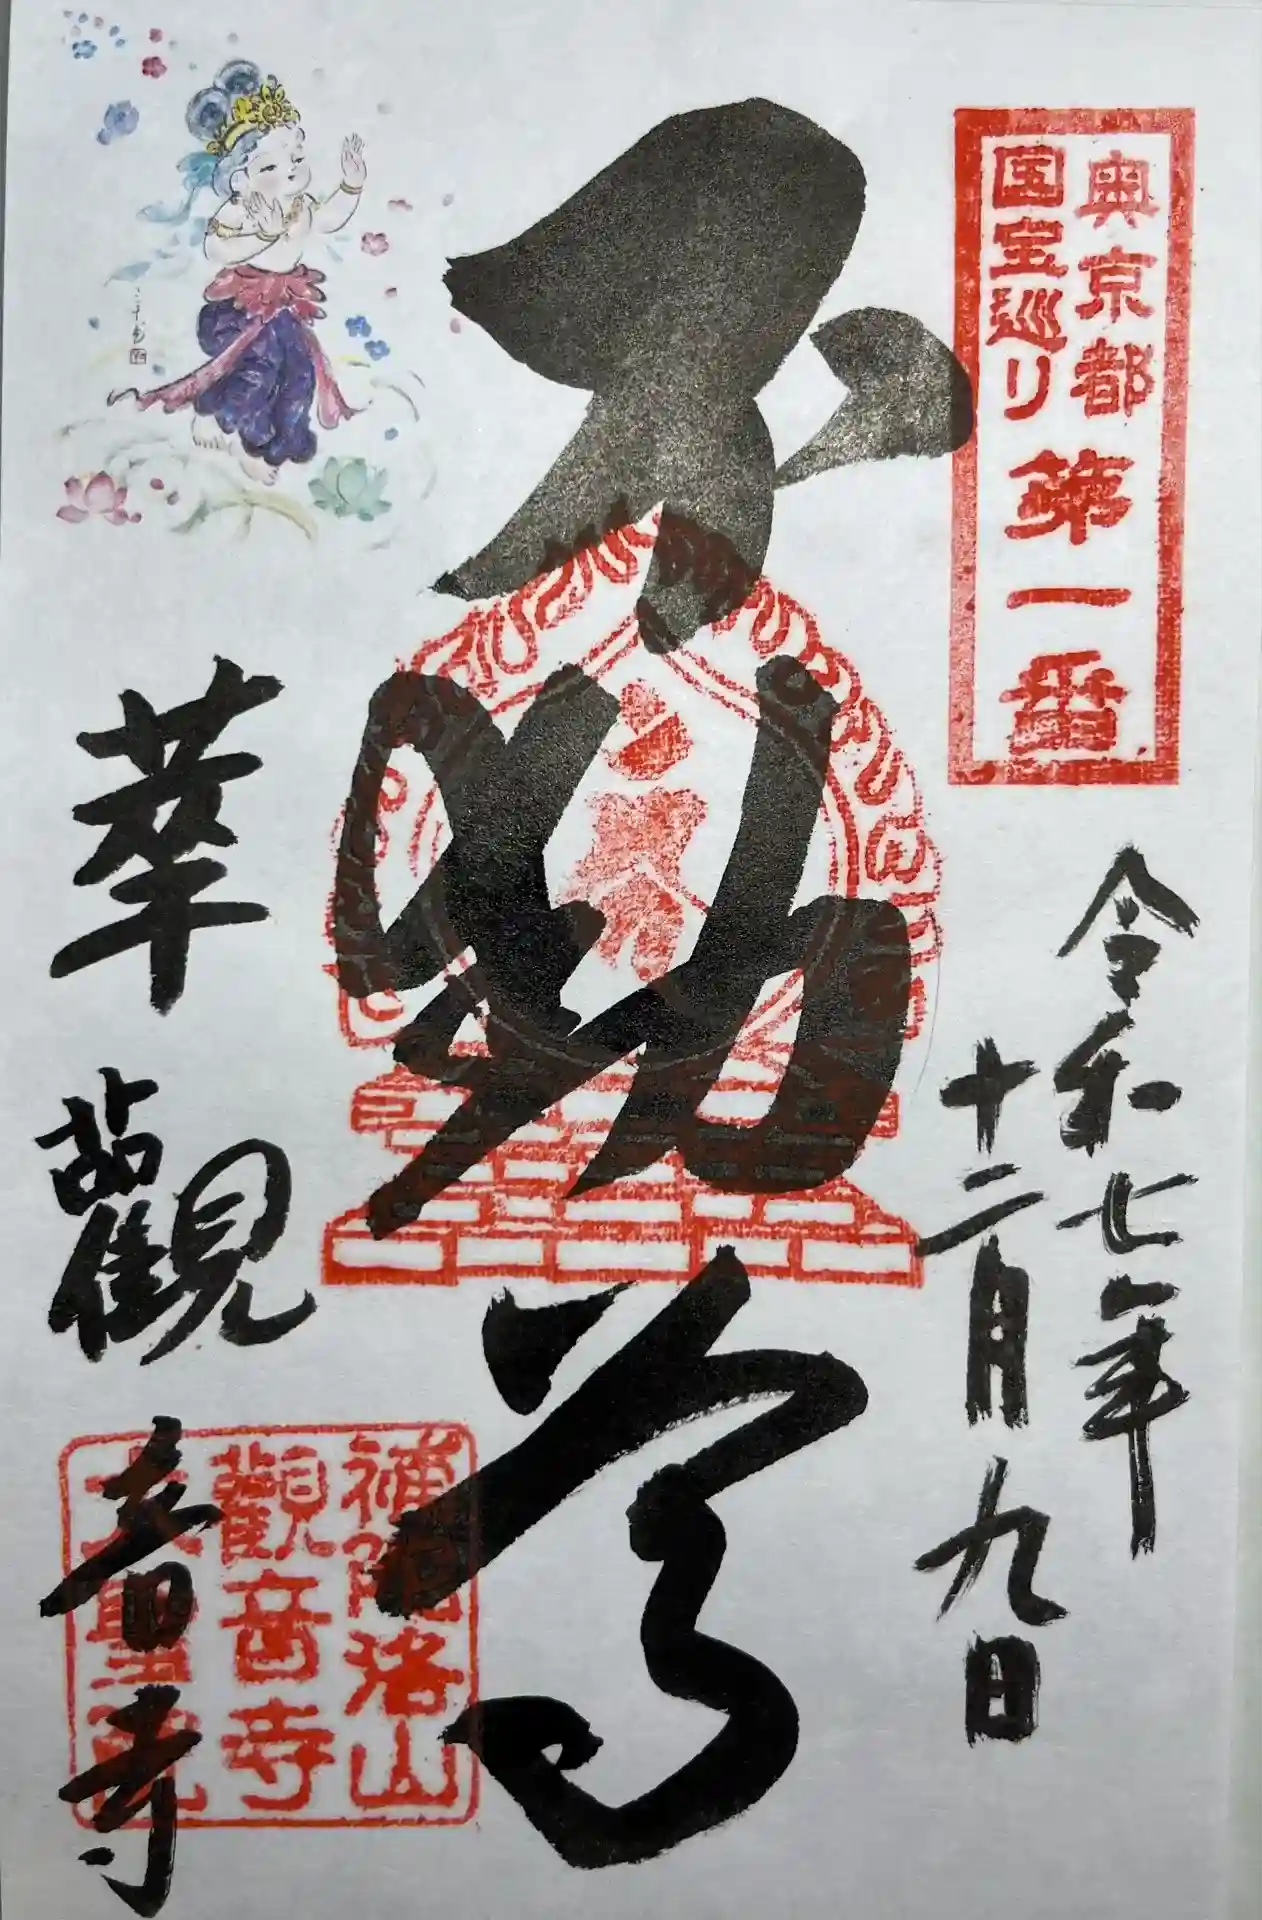 奥京都
国宝巡り
第一番
令和七年
十二月九日
不動尊
華
觀音寺
補陀洛山
觀音寺
大聖院